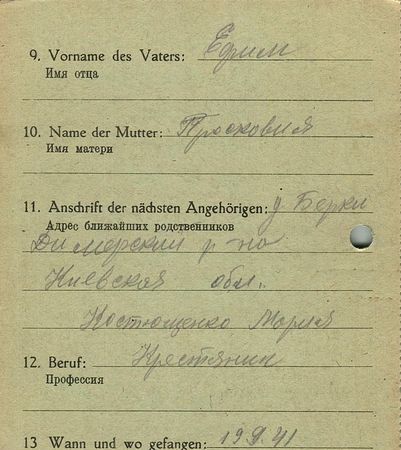 9. Vorname des Vaters: Ефим
Имя отца
10. Name der Mutter: Просковия
Имя матери
11. Anschrift der nächsten Angehörigen: д Берки
Адрес ближайших родственников
Димерский р-на
Киевская обл.
Костющенко Мария
12. Beruf: Крестянин
Профессия
13 Wann und wo gefangen: 19.9.41